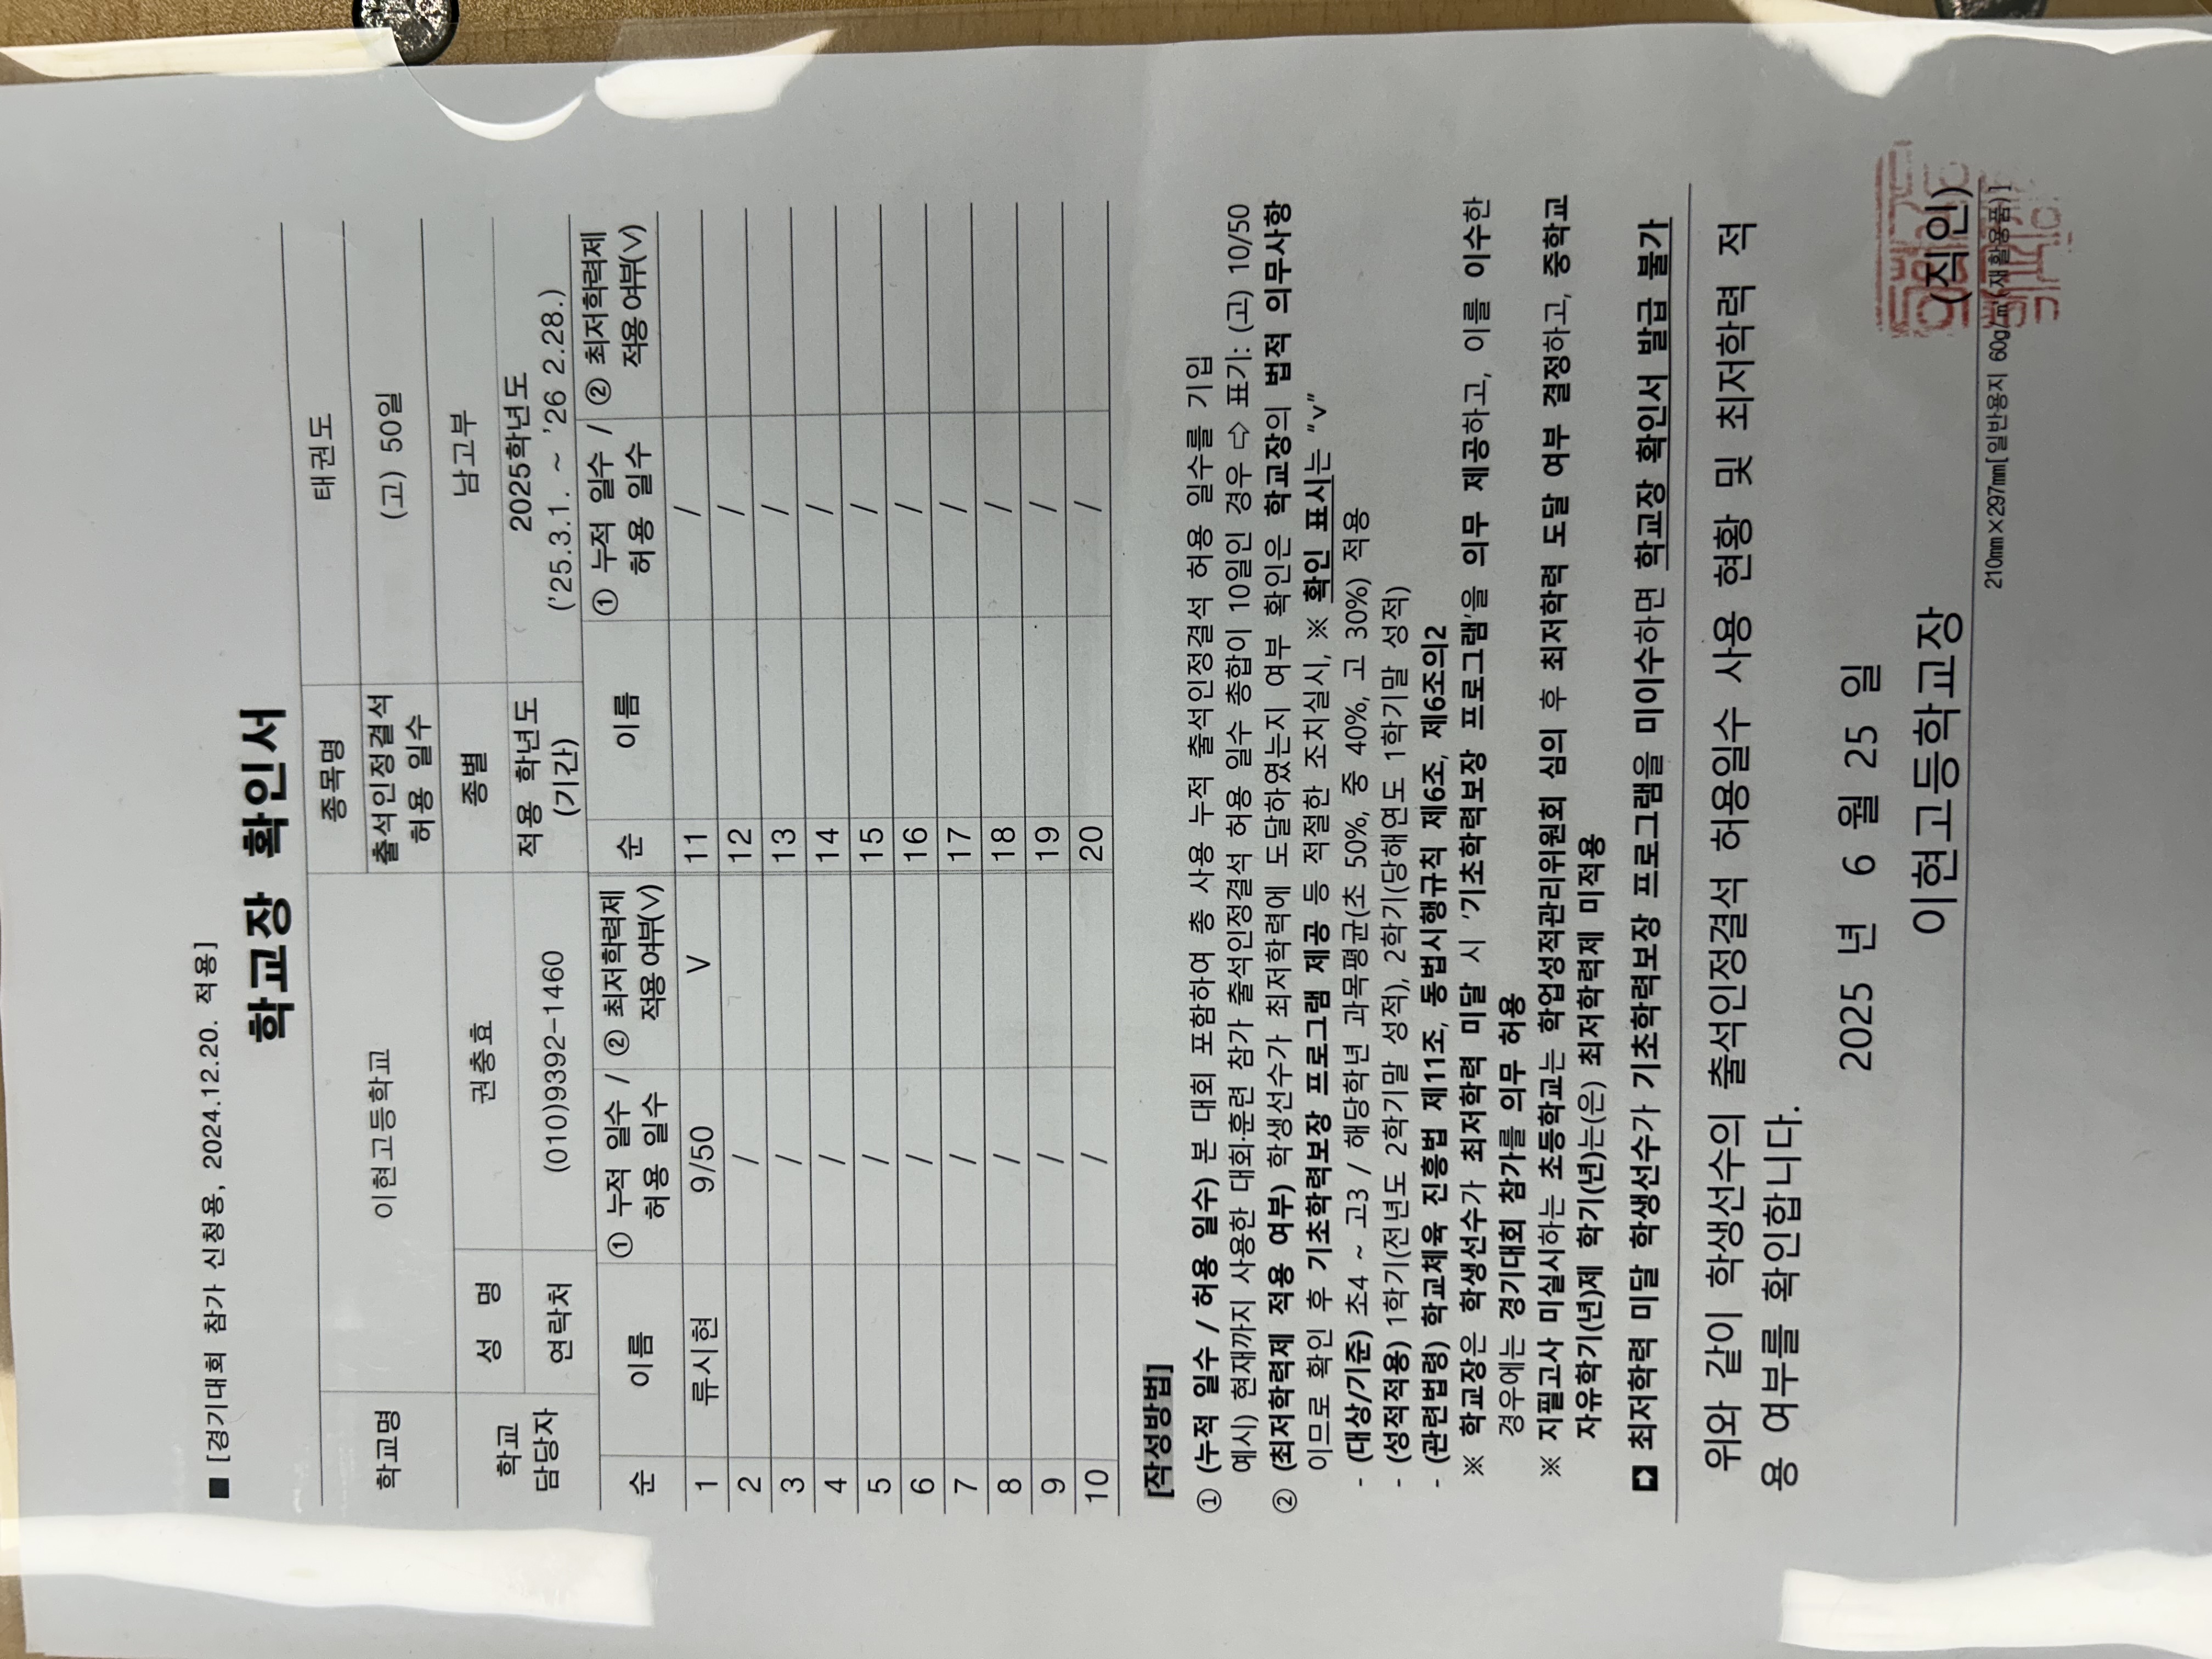 ■ [경기대회 참가 신청용, 2024.12.20. 적용]
학교장 확인서
학교명 이현고등학교 종목명 태권도
출석인정결석 허용 일수 (고) 50일
학교 담당자 성 명 권충효 종별 남고부
연락처 (010)9392-1460 적용 학년도 (기간) 2025학년도 ('25.3.1. ~ '26 2.28.)
순 이름 ① 누적 일수 / 허용 일수 ② 최저학력제 적용여부(V) 순 이름 ① 누적 일수 / 허용 일수 ② 최저학력제 적용여부(V)
1 류시현 9/50 V 11 /
2 / 12 /
3 / 13 /
4 / 14 /
5 / 15 /
6 / 16 /
7 / 17 /
8 / 18 /
9 / 19 /
10 / 20 /
[작성방법]
① (누적 일수 / 허용 일수) 본 대회 포함하여 총 사용 누적 출석인정결석 허용 일수를 기입
예시) 현재까지 사용한 대회·훈련 참가 출석인정결석 허용 일수 총합이 10일인 경우 ⇨ 표기: (고) 10/50
② (최저학력제 적용 여부) 학생선수가 최저학력에 도달하였는지 여부 확인은 학교장의 법적 의무사항
이므로 확인 후 기초학력보장 프로그램 제공 등 적절한 조치실시, ※ 확인 표시는 "v"
- (대상/기준) 초4 ~ 고3 / 해당학년 과목평균(초 50%, 중 40%, 고 30%) 적용
- (성적적용) 1학기(전년도 2학기말 성적), 2학기(당해연도 1학기말 성적)
- (관련법령) 학교체육 진흥법 제11조, 동법시행규칙 제6조, 제6조의2
※ 학교장은 학생선수가 최저학력 미달 시 '기초학력보장 프로그램'을 의무 제공하고, 이를 이수한
경우에는 경기대회 참가를 의무 허용
※ 지필고사 미실시하는 초등학교는 학업성적관리위원회 심의 후 최저학력 도달 여부 결정하고, 중학교
자유학기(년)제 학기(년)는(은) 최저학력제 미적용
➡ 최저학력 미달 학생선수가 기초학력보장 프로그램을 미이수하면 학교장 확인서 발급 불가
위와 같이 학생선수의 출석인정결석 허용일수 사용 현황 및 최저학력 적
용 여부를 확인합니다.
2025 년 6 월 25 일
이현고등학교장 (직인)
210㎜×297㎜[일반용지 60g/㎡(재활용품)]